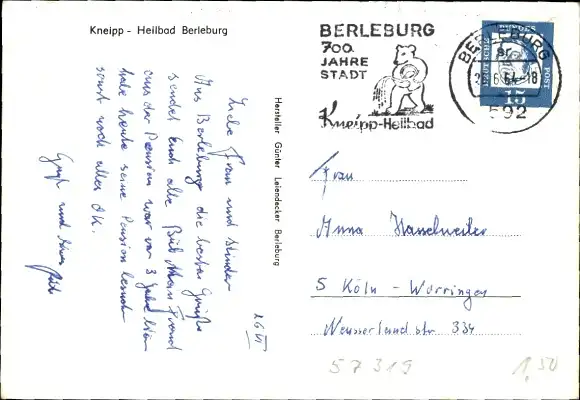 Kneipp - Heilbad Berleburg
BERLEBURG
700
JAHRE
STADT
Kneipp-Heilbad
BERLEBURG
-18
592
DEUTSCHE BUNDESPOST
15
Hersteller Günter Leiendecker Berleburg
26 VI
Liebe Frau und Kinder
Aus Berleburg die besten Grüße
sendet Euch alle Mein Freund
aus der Pension war vor 3 Jahre hier
habe heute seine Pension kennen
sonst noch alles OK.
Gruß und
Frau
Anna Hanelweiler
5 Köln - Worringen
Neusserland str 334
57319
1,50